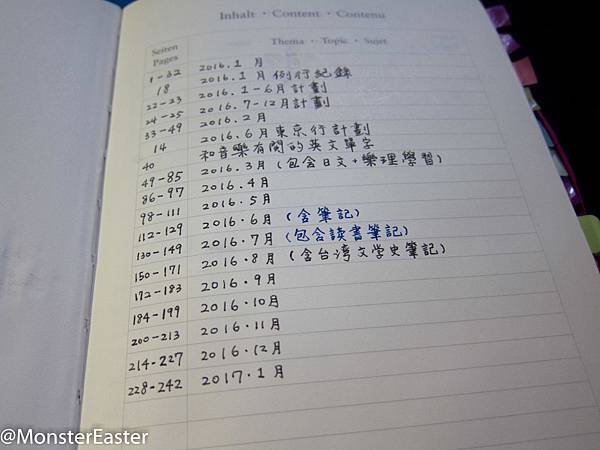 Inhalt · Content · Contenu
Seiten Pages
Thema · Topic · Sujet
1-32 2016.1月
18 2016.1月例行紀錄
22-23 2016.1-6月計劃
24-25 2016.7-12月計劃
33-49 2016.2月
14 2016.6月東京行計劃
40 和音樂有関的英文單字
49-85 2016.3月(包含日文+樂理學習)
86-97 2016.4月
98-111 2016.5月
112-129 2016.6月(含筆記)
130-149 2016.7月(包含讀書筆記)
150-171 2016.8月(含台湾文学史筆記)
172-183 2016.9月
184-199 2016.10月
200-213 2016.11月
214-227 2016.12月
228-242 2017.1月
@MonsterEaster